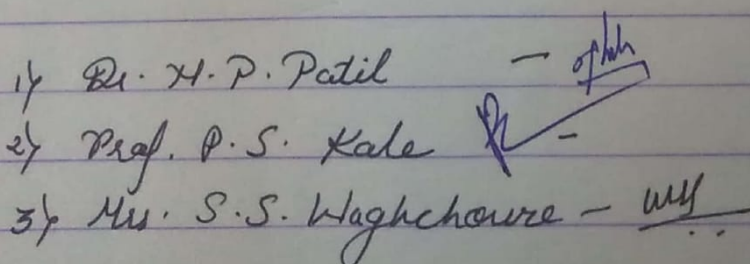 1) Dr. H. P. Patil -
2) Prof. P. S. Kale -
3) Mrs. S. S. Waghchoure -